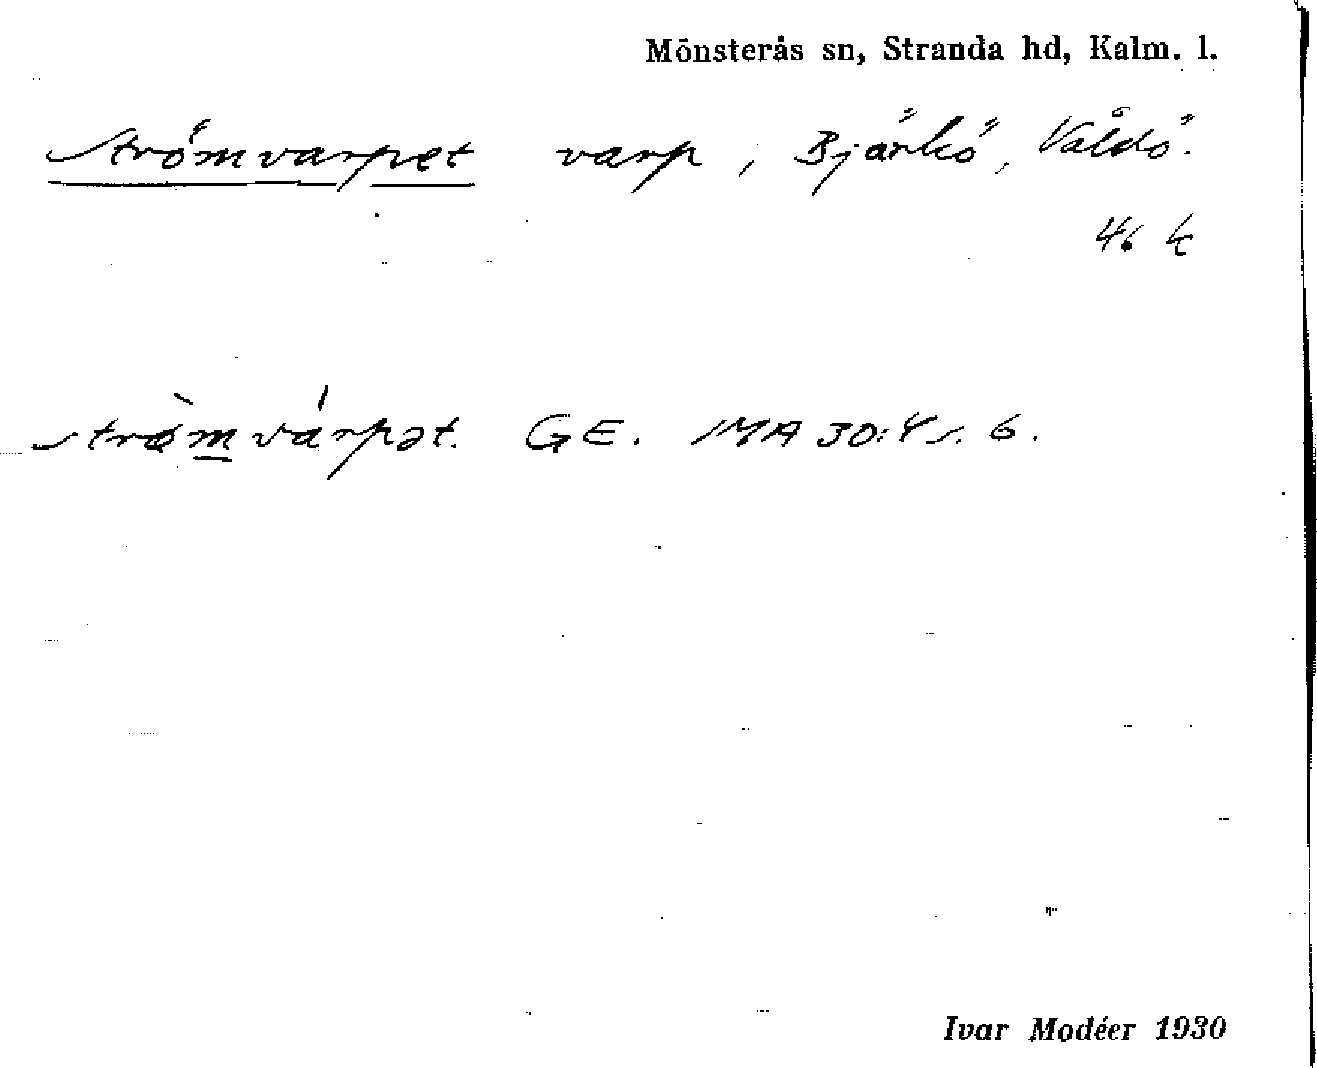 Mönsterås sn, Stranda hd, Kalm. l.
Strömvarpet varp, Björkö, Vållö.
4. k
strø̀mvárpət. GE. IMA 30:4 s. 6.
Ivar Modéer 1930